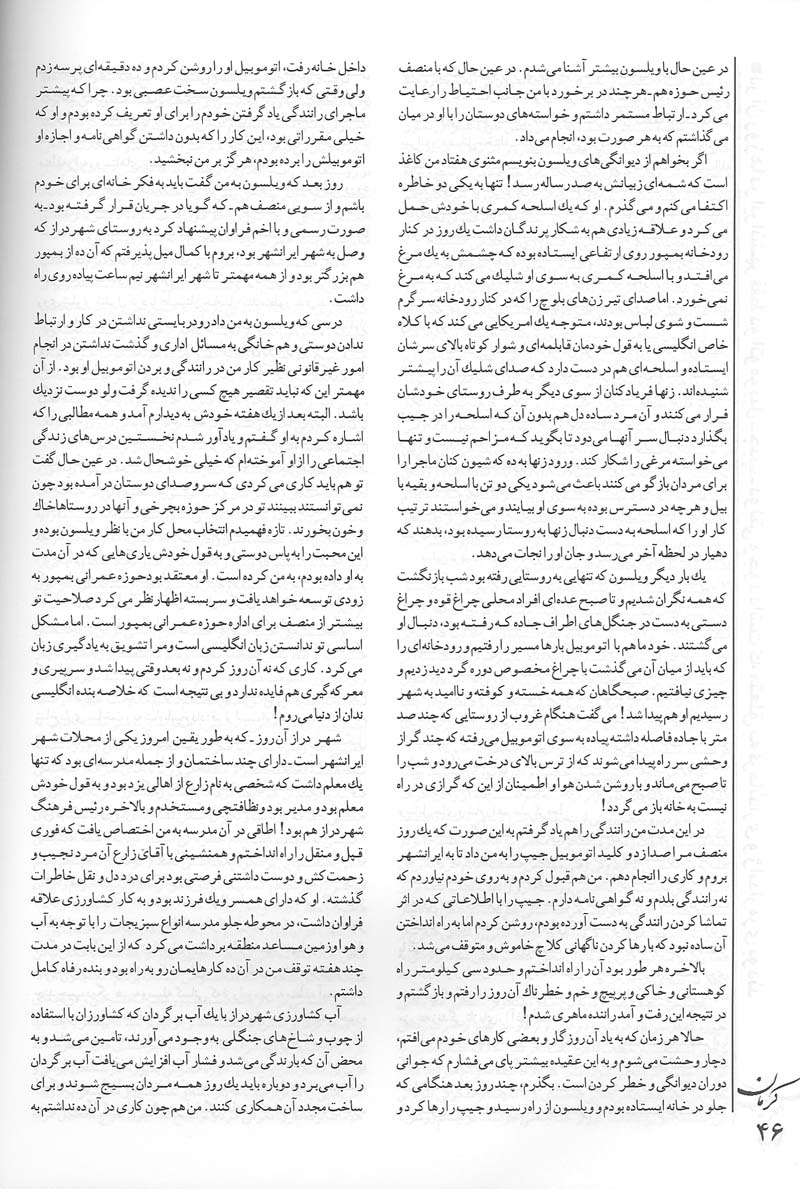 در عین حال با ویلسون بیشتر آشنا می‌شدم. در عین حال که با منصف
رئیس حوزه هم ـ هر چند در برخورد با من جانب احتیاط را رعایت
می‌کرد ـ ارتباط مستمر داشتم و خواسته‌های دوستان را با او در میان
می‌گذاشتم که به هر صورت بود، انجام می‌داد.
اگر بخواهم از دیوانگی‌های ویلسون بنویسم مثنوی هفتاد من کاغذ
است که شمه‌ای ز بیانش به صد رساله رسد! تنها به یکی دو خاطره
اکتفا می‌کنم و می‌گذرم. او که یك اسلحه کمری با خودش حمل
می‌کرد و علاقه زیادی هم به شکار پرندگان داشت یك روز در کنار
رودخانه بمپور روی ارتفاعی ایستاده بوده که چشمش به یك مرغ
می‌افتد و با اسلحه کمری به سوی او شلیك می‌کند که به مرغ
نمی‌خورد. اما صدای تیر زن‌های بلوچ را که در کنار رودخانه سرگرم
شست و شوی لباس بودند، متوجه یك امریکایی می‌کند که با کلاه
خاص انگلیسی یا به قول خودمان قابلمه‌ای و شوار کوتاه بالای سرشان
ایستاده و اسلحه‌ای هم در دست دارد که صدای شلیك آن را پیشتر
شنیده‌اند. زنها فریادکنان از سوی دیگر به طرف روستای خودشان
فرار می‌کنند و آن مرد ساده دل هم بدون آن که اسلحه را در جیب
بگذارد دنبال سر آنها می‌دود تا بگوید که مزاحم نیست و تنها
می‌خواسته مرغی را شکار کند. ورود زنها به ده که شیون کنان ماجرا را
برای مردان بازگو می‌کنند باعث می‌شود یکی دو تن با اسلحه و بقیه با
بیل و هر چه در دسترس بوده به سوی او بیایند و می‌خواستند ترتیب
کار او را که اسلحه به دست دنبال زنها به روستا رسیده بود، بدهند که
دهیار در لحظه آخر می‌رسد و جان او را نجات می‌دهد.
یك بار دیگر ویلسون که تنهایی به روستایی رفته بود شب بازنگشت
که همه نگران شدیم و تا صبح عده‌ای افراد محلی چراغ قوه و چراغ
دستی به دست در جنگل‌های اطراف جاده که رفته بود، دنبال او
می‌گشتند. خود ما هم با اتوموبیل بارها مسیر را رفتیم و رودخانه‌ای را
که باید از میان آن می‌گذشت با چراغ مخصوص دوره گرد دید زدیم و
چیزی نیافتیم. صبحگاهان که همه خسته و کوفته و ناامید به شهر
رسیدیم او هم پیدا شد! می‌گفت هنگام غروب از روستایی که چند صد
متر با جاده فاصله داشته پیاده به سوی اتوموبیل می‌رفته که چند گراز
وحشی سر راه پیدا می‌شوند که از ترس بالای درخت می‌رود و شب را
تا صبح می‌ماند و با روشن شدن هوا و اطمینان از این که گرازی در راه
نیست به خانه باز می‌گردد!
در این مدت من رانندگی را هم یاد گرفتم به این صورت که یك روز
منصف مرا صدا زد و کلید اتوموبیل جیپ را به من داد تا به ایرانشهر
بروم و کاری را انجام دهم. من هم قبول کردم و به روی خودم نیاوردم که
نه رانندگی بلدم و نه گواهی نامه دارم. جیپ را با اطلاعاتی که در اثر
تماشا کردن رانندگی به دست آورده بودم، روشن کردم اما به راه انداختن
آن ساده نبود که بارها کردن ناگهانی کلاچ خاموش و متوقف می‌شد.
بالاخره هر طور بود آن را راه انداختم و حدود سی کیلومتر راه
کوهستانی و خاکی و پرپیچ و خم و خطرناك آن روز را رفتم و بازگشتم و
در نتیجه این رفت و آمد راننده ماهری شدم!
حالا هر زمان که به یاد آن روزگار و بعضی کارهای خودم می‌افتم،
دچار وحشت می‌شوم و به این عقیده بیشتر پای می‌فشارم که جوانی
دوران دیوانگی و خطر کردن است. بگذرم، چند روز بعد هنگامی که
جلو در خانه ایستاده بودم و ویلسون از راه رسید و جیپ را رها کرد و
داخل خانه رفت، اتوموبیل او را روشن کردم و ده دقیقه‌ای پرسه زدم
ولی وقتی که بازگشتم ویلسون سخت عصبی بود. چرا که پیشتر
ماجرای رانندگی یاد گرفتن خودم را برای او تعریف کرده بودم و او که
خیلی مقرراتی بود، این کار را که بدون داشتن گواهی نامه و اجازه او
اتوموبیلش را برده بودم، هرگز بر من نبخشید.
روز بعد که ویلسون به من گفت باید به فکر خانه‌ای برای خودم
باشم و از سویی منصف هم ـ که گویا در جریان قرار گرفته بود ـ به
صورت رسمی و با اخم فراوان پیشنهاد کرد به روستای شهر دراز که
وصل به شهر ایرانشهر بود، بروم با کمال میل پذیرفتم که آن ده از بمپور
هم بزرگتر بود و از همه مهمتر تا شهر ایرانشهر نیم ساعت پیاده روی راه
داشت.
درسی که ویلسون به من داد رودربایستی نداشتن در کار و ارتباط
ندادن دوستی و هم خانگی به مسائل اداری و گذشت نداشتن در انجام
امور غیرقانونی نظیر کار من در رانندگی و بردن اتوموبیل او بود. از آن
مهمتر این که نباید تقصیر هیچ کسی را ندیده گرفت ولو دوست نزدیك
باشد. البته بعد از یك هفته خودش به دیدارم آمد و همه مطالبی را که
اشاره کردم به او گفتم و یادآور شدم نخستین درس‌های زندگی
اجتماعی را از او آموخته‌ام که خیلی خوشحال شد. در عین حال گفت
تو هم باید کاری می‌کردی که سر و صدای دوستان در آمده بود چون
نمی‌توانستند ببینند تو در مرکز حوزه بچرخی و آنها در روستاها خاك
و خون بخورند. تازه فهمیدم انتخاب محل کار من با نظر ویلسون بوده و
این محبت را به پاس دوستی و به قول خودش یاری‌هایی که در آن مدت
به او داده بودم، به من کرده است. او معتقد بود حوزه عمرانی بمپور به
زودی توسعه خواهد یافت و سربسته اظهار نظر می‌کرد صلاحیت تو
بیشتر از منصف برای اداره حوزه عمرانی بمپور است. اما مشکل
اساسی تو ندانستن زبان انگلیسی است و مرا تشویق به یادگیری زبان
می‌کرد. کاری که نه آن روز کردم و نه بعد وقتی پیدا شد و سرپیری و
معرکه گیری هم فایده ندارد و بی نتیجه است که خلاصه بنده انگلیسی
ندان از دنیا می‌روم!
شهر دراز آن روز ـ که به طور یقین امروز یکی از محلات شهر
ایرانشهر است ـ دارای چند ساختمان و از جمله مدرسه‌ای بود که تنها
یك معلم داشت که شخصی به نام زارع از اهالی یزد بود و به قول خودش
معلم بود و مدیر بود و نظافتچی و مستخدم و بالاخره رئیس فرهنگ
شهر دراز هم بود! اطاقی در آن مدرسه به من اختصاص یافت که فوری
قیل و منقل را راه انداختم و همنشینی با آقای زارع آن مرد نجیب و
زحمت کش و دوست داشتنی فرصتی بود برای درد دل و نقل خاطرات
گذشته. او که دارای همسر و یك فرزند بود و به کار کشاورزی علاقه
فراوان داشت، در محوطه جلو مدرسه انواع سبزیجات را با توجه به آب
و هوا و زمین مساعد منطقه برداشت می‌کرد که از این بابت در مدت
چند هفته توقف من در آن ده کارهایمان رو به راه بود و بنده رفاه کامل
داشتم.
آب کشاورزی شهر دراز با یك آب برگردان که کشاورزان با استفاده
از چوب و شاخ‌های جنگلی به وجود می‌آورند، تامین می‌شد و به
محض آن که بارندگی می‌شد و فشار آب افزایش می‌یافت آب برگردان
را آب می‌برد و دوباره باید یك روز همه مردان بسیج شوند و برای
ساخت مجدد آن همکاری کنند. من هم چون کاری در آن ده نداشتم به
کرمان
۴۶